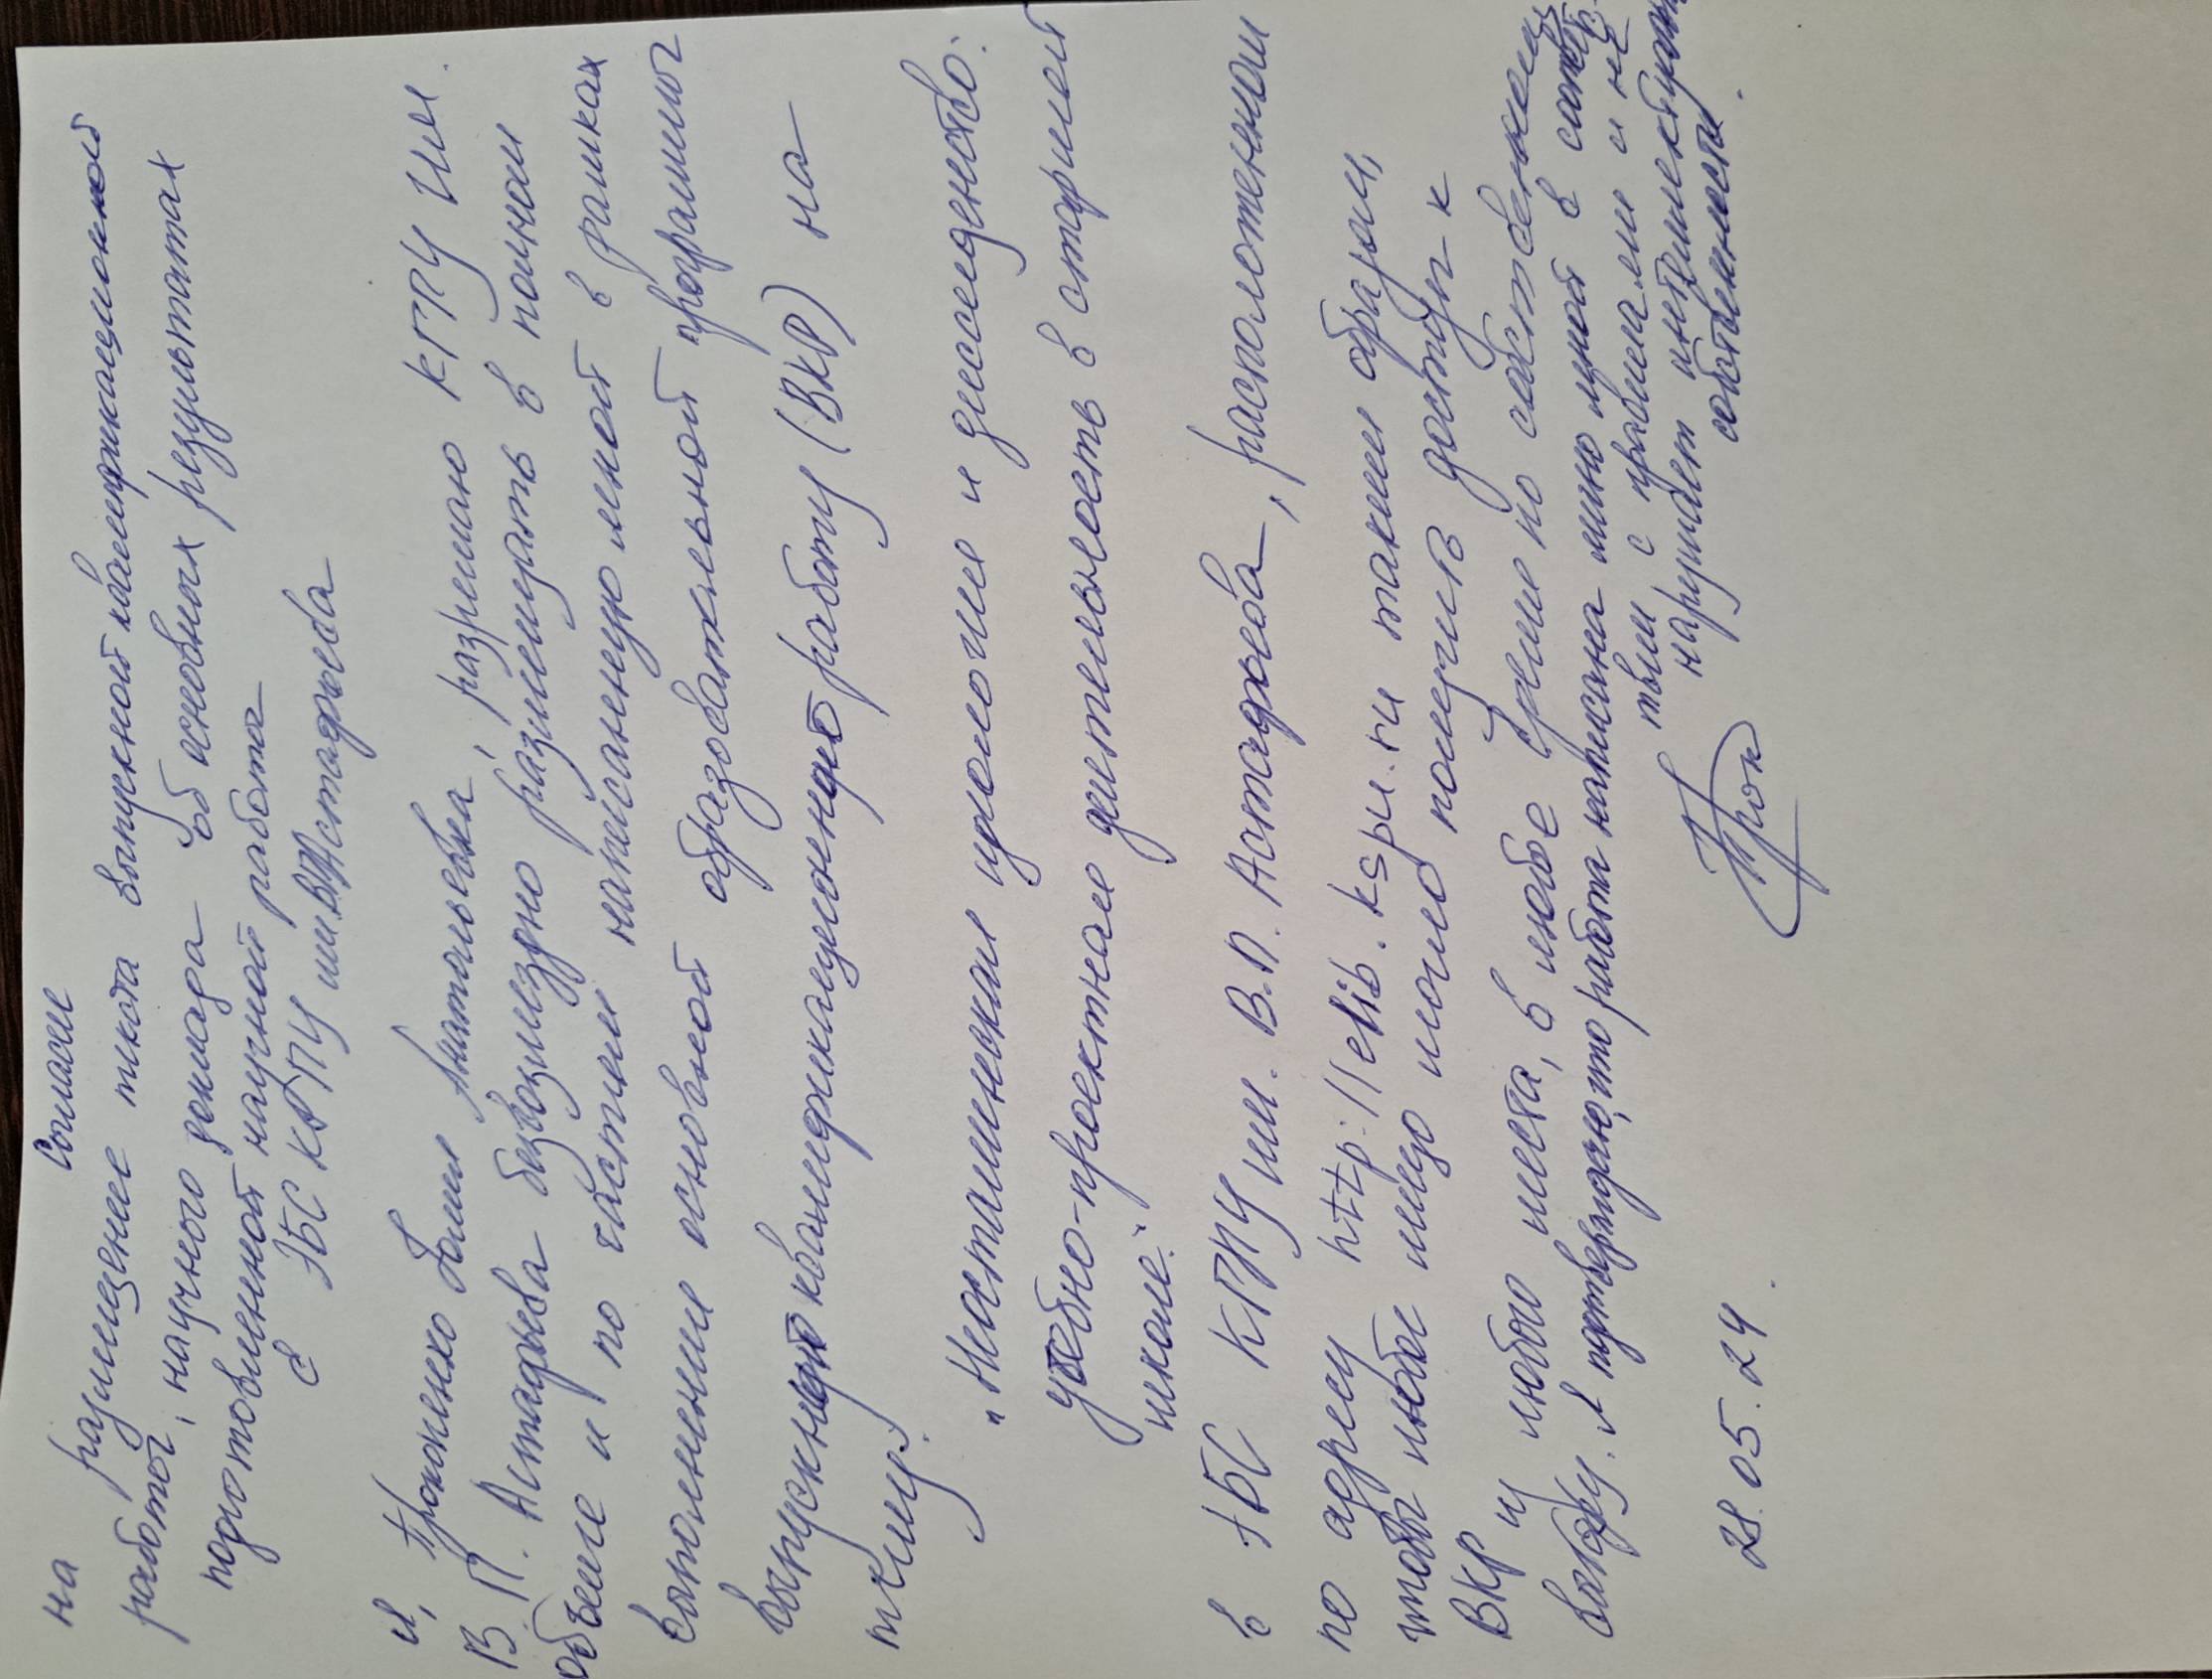 Согласие
на размещение текста выпускной квалификационной
работы, научного доклада об основных результатах
подготовленной научной работы
в ЭБС КГПУ им. В.П. Астафьева
Я, Прокопенко Юлия Анатольевна, разрешаю КГПУ им.
В. П. Астафьева безвозмездно размещать в полном
объеме и по частям написанную мной в рамках
выполнения основной образовательной программы
выпускную квалификационную работу (ВКР) на
тему:
"Ностальгия и диссидентство:
учебно-проектная деятельность в старшей
школе."
в ЭБС КГПУ им. В.П. Астафьева, расположенном
по адресу http://elib.kspu.ru таким образом,
чтобы любое лицо могло получить доступ к
ВКР из любого места, в любое время по собственному
выбору. Я подтверждаю, что работа написана мною лично в соответ-
твии с правилами и не
нарушает интеллектуальной
собственности.
28.05.24